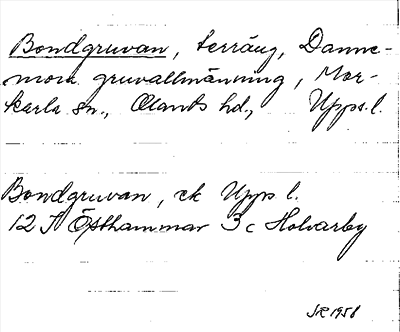 Bondgruvan, terräng, Danne-
mora gruvallmänning, Mor-
karla sn., Olands hd., Upps. l.
Bondgruvan, ek Upps l.
12 I Östhammar 3c Holvarby
1958